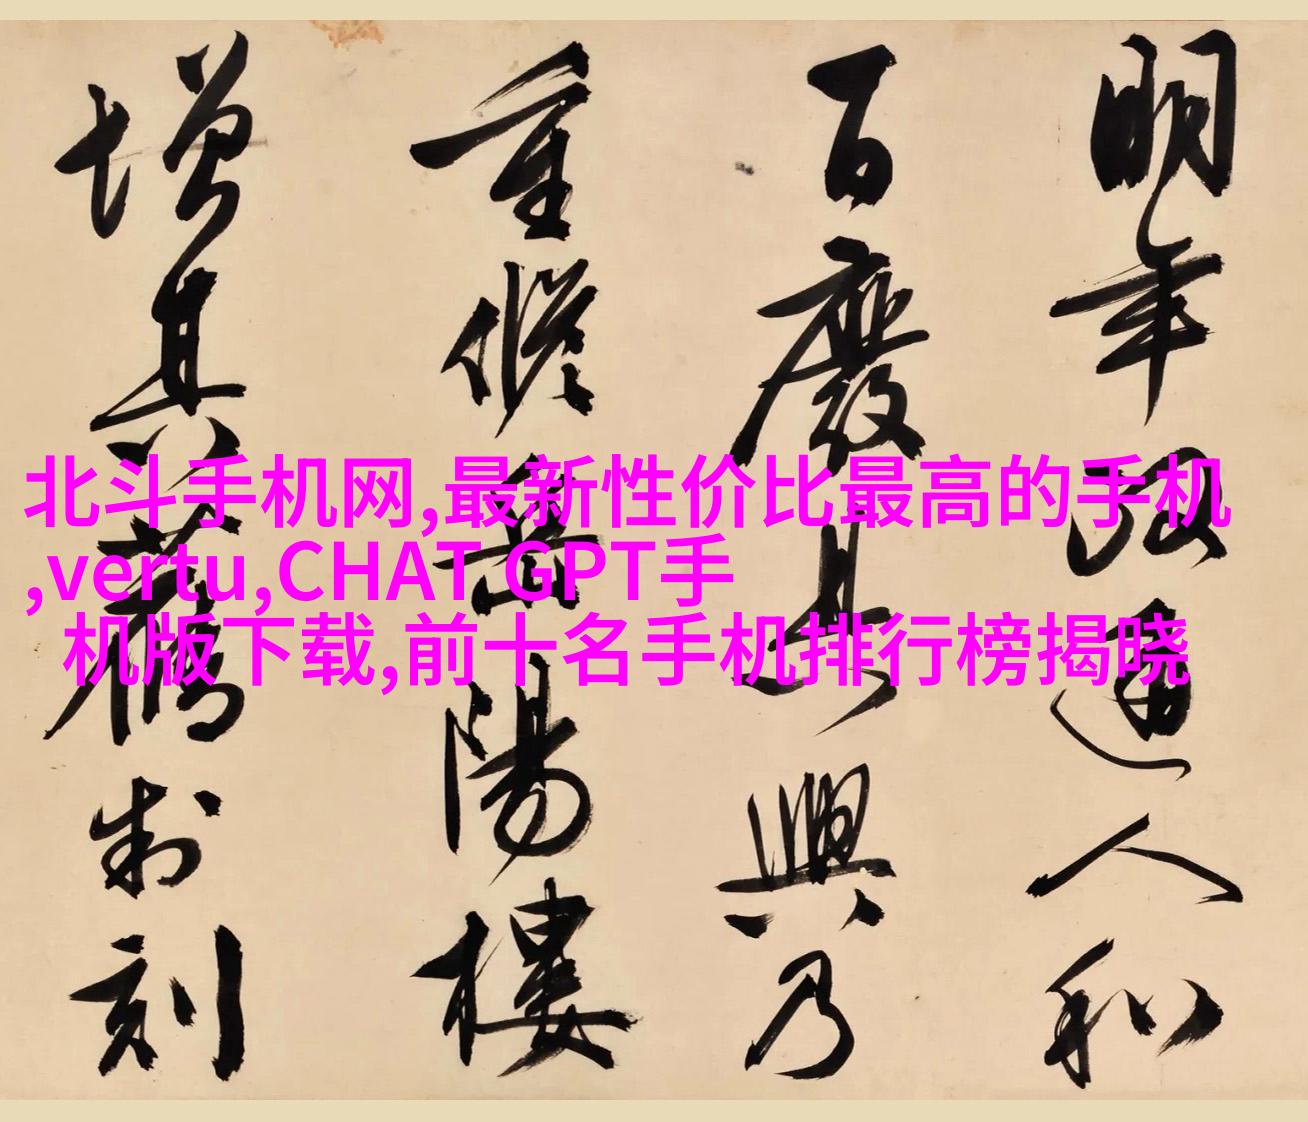 明年政通人和
百廢具興乃
重修岳陽樓
增其舊制刻
北斗手机网,最新性价比最高的手机
,vertu,CHAT GPT手
机版下载,前十名手机排行榜揭晓